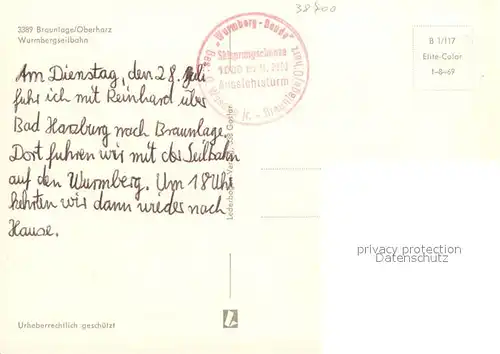 38700
3389 Braunlage/Oberharz
Wurmbergseilbahn
"Wurmberg-Baude"
Skisprungschanze
1000 m ü. M.
Aussichtsturm
B 1/117
Elite-Color
1-8-69
Am Dienstag, den 28. Juli
fuhr ich mit Reinhard über
Bad Harzburg nach Braunlage.
Dort fuhren wir mit der Seilbahn
auf den Wurmberg. Um 18 Uhr
kehrten wir dann wieder nach
Hause.
Goslar
privacy protection
Datenschutz
Urheberrechtlich geschützt